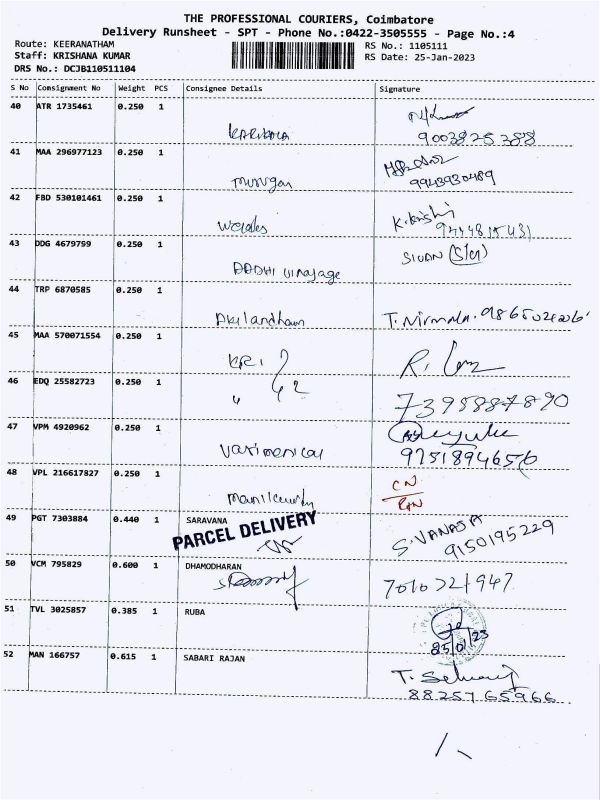 THE PROFESSIONAL COURIERS, Coimbatore
Delivery Runsheet - SPT - Phone No.:0422-3505555 - Page No.:4
Route: KEERANATHAM
RS No.: 1105111
Staff: KRISHANA KUMAR
RS Date: 25-Jan-2023
DRS No.: DCJB110511104
S No Consignment No Weight PCS Consignee Details Signature
40 ATR 1735461 0.250 1
9003825388
41 MAA 296977123 0.250 1
murugan 9943930489
42 FBD 530101461 0.250 1
43 DDG 4679799 0.250 1
SIVAN
44 TRP 6870585 0.250 1
Akilandham T. Nirmala.
45 MAA 570071554 0.250 1
46 EDQ 25582723 0.250 1
7395887890
47 VPM 4920962 0.250 1
9751894656
48 VPL 216617827 0.250 1
CN
49 PGT 7303884 0.440 1 SARAVANA
PARCEL DELIVERY
S. VANAJA
9150195229
50 VCM 795829 0.600 1 DHAMODHARAN
7010221947
51 TVL 3025857 0.385 1 RUBA
52 MAN 166757 0.615 1 SABARI RAJAN
8825765966